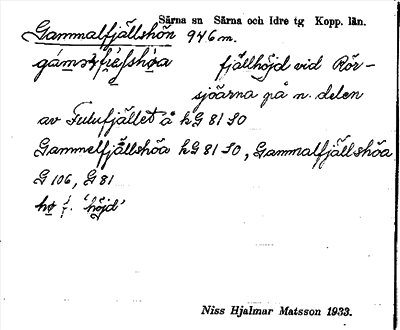 Särna sn Särna och Idre tg Kopp. län.
Gammalfjällshön 946 m.
fjällhöjd vid Rör-
sjöarna på n. delen
av Fulufjället å kG 81 SO
Gammelfjällshöa kG 81 SO, Gammalfjällshöa
G 106, G 81
hø f. 'höjd'
Niss Hjalmar Matsson 1933.